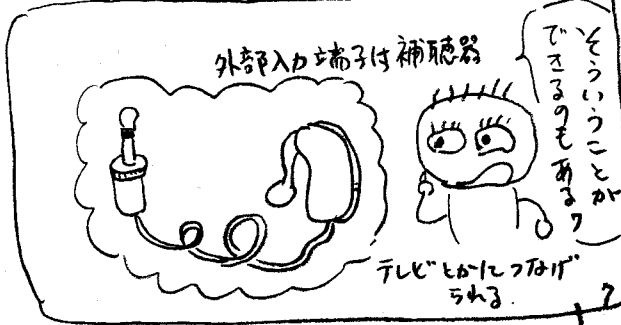 外部入力端子は補聴器
そういうことが
できるのもある?
テレビとかにつなげ
られる.
7